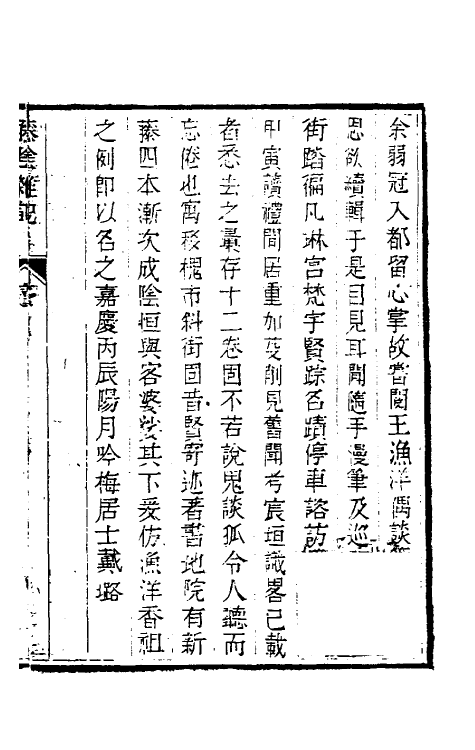 余弱冠入都留心掌故嘗閱王漁洋偶談
思欲續輯于是目見耳聞隨手漫筆及巡
街踏徧凡琳宮梵宇賢踪名蹟停車諮訪
甲寅讀禮閒居重加芟削見舊聞考宸垣識畧已載
者悉去之彚存十二卷固不若說鬼談狐令人聽而
忘倦也寓移槐市斜街固昔賢寄迹著書地院有新
藤四本漸次成陰恒與客婆娑其下爰仿漁洋香祖
之例卽以名之嘉慶丙辰陽月吟梅居士戴璐
藤陰雜記